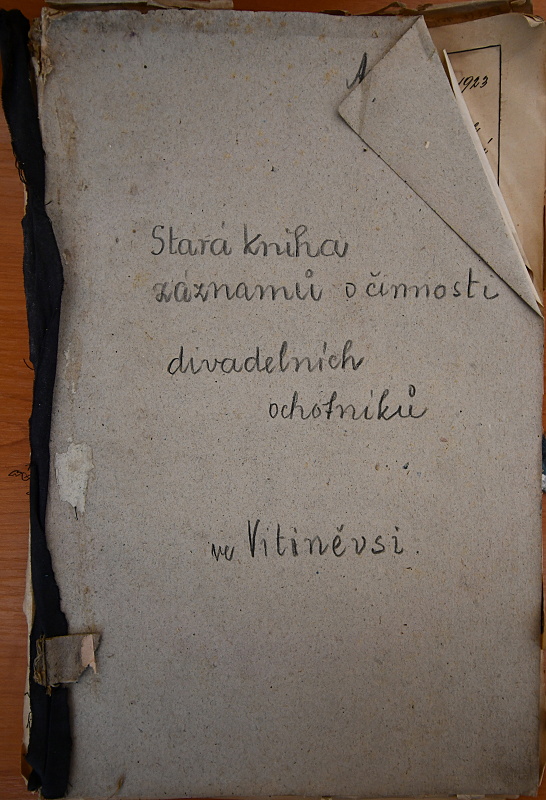 1923
Stará kniha
záznamů o činnosti
divadelních
ochotníků
ve Vitiněvsi.